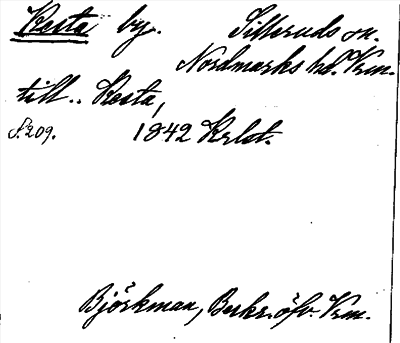 Resta by. Silleruds sn.
Nordmarks hd. Vrm.
till.. Resta,
S. 209. 1842 Krlst.
Björkman, Beskr. öfv. Vrm.